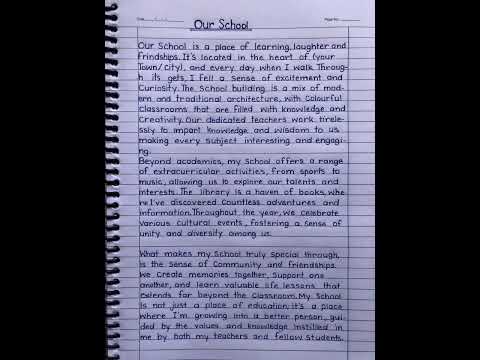 Date
Page No.
Our School
Our School is a place of learning, laughter and
frindships. It's located in the heart of (your
Town/city), and every day when I walk Throug-
h its gets, I fell a sense of excitement and
Curiosity. The School building is a mix of mod-
ern and traditional architecture, with Colourful
Classrooms that are filled with knowledge and
Creativity. Our dedicated teachers work tirele-
ssly to impart knowledge and wisdom to us
making every subject interesting and engagi-
ng.
Beyond academics, my School offers a range
of extracurricular activities, from sports to
music, allowing us to explore our talents and
interests. The library is a haven of books, whe
re I've discovered Countless adventures and
information. Throughout the year, we celebrate
various cultural events, fostering a sense of
unity and diversity among us.
What makes my School truly special through,
is the sense of Community and friendships.
We Create memories together, Support one
another, and learn valuable life lessons that
extends far beyond the Classroom. My School
is not just a place of education, it's a place
where I'm growing into a better person, gui-
ded by the values and knowledge instilled in
me by both my teachers and fellow Students.